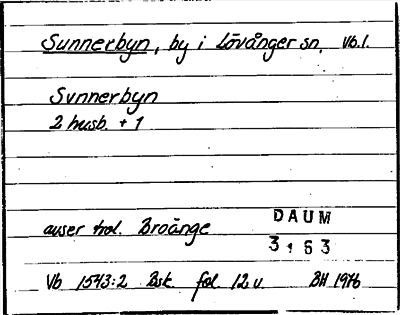 Sunnerbyn, by i Lövånger sn. Vb.l.
Svnnerbyn
2 husb. + 1
auser trol. Broänge
DAUM
3163
Vb 1543:2 Bsk. fol. 12 v. BH 1976